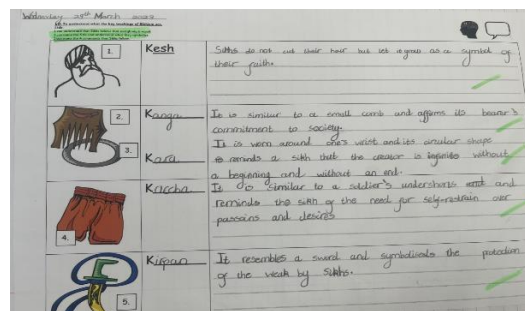 Wednesday 25th March
1.
Kesh
Sikhs do not cut their hair but let it grow as a symbol of
their faith.
2.
Kanga
It is similar to a small comb and affirms its bearer's
commitment to society.
3.
Kara
It is worn around one's wrist and its circular shape
reminds a sikh that the creator is without
a beginning and without an end.
Kaccha
It is similar to a soldier's undershorts and
reminds the sikh of the need for self-restrain over
passoins and desires
4.
Kirpan
It resembles a sword and symbolises the protection
of the weak by Sikhs.
5.